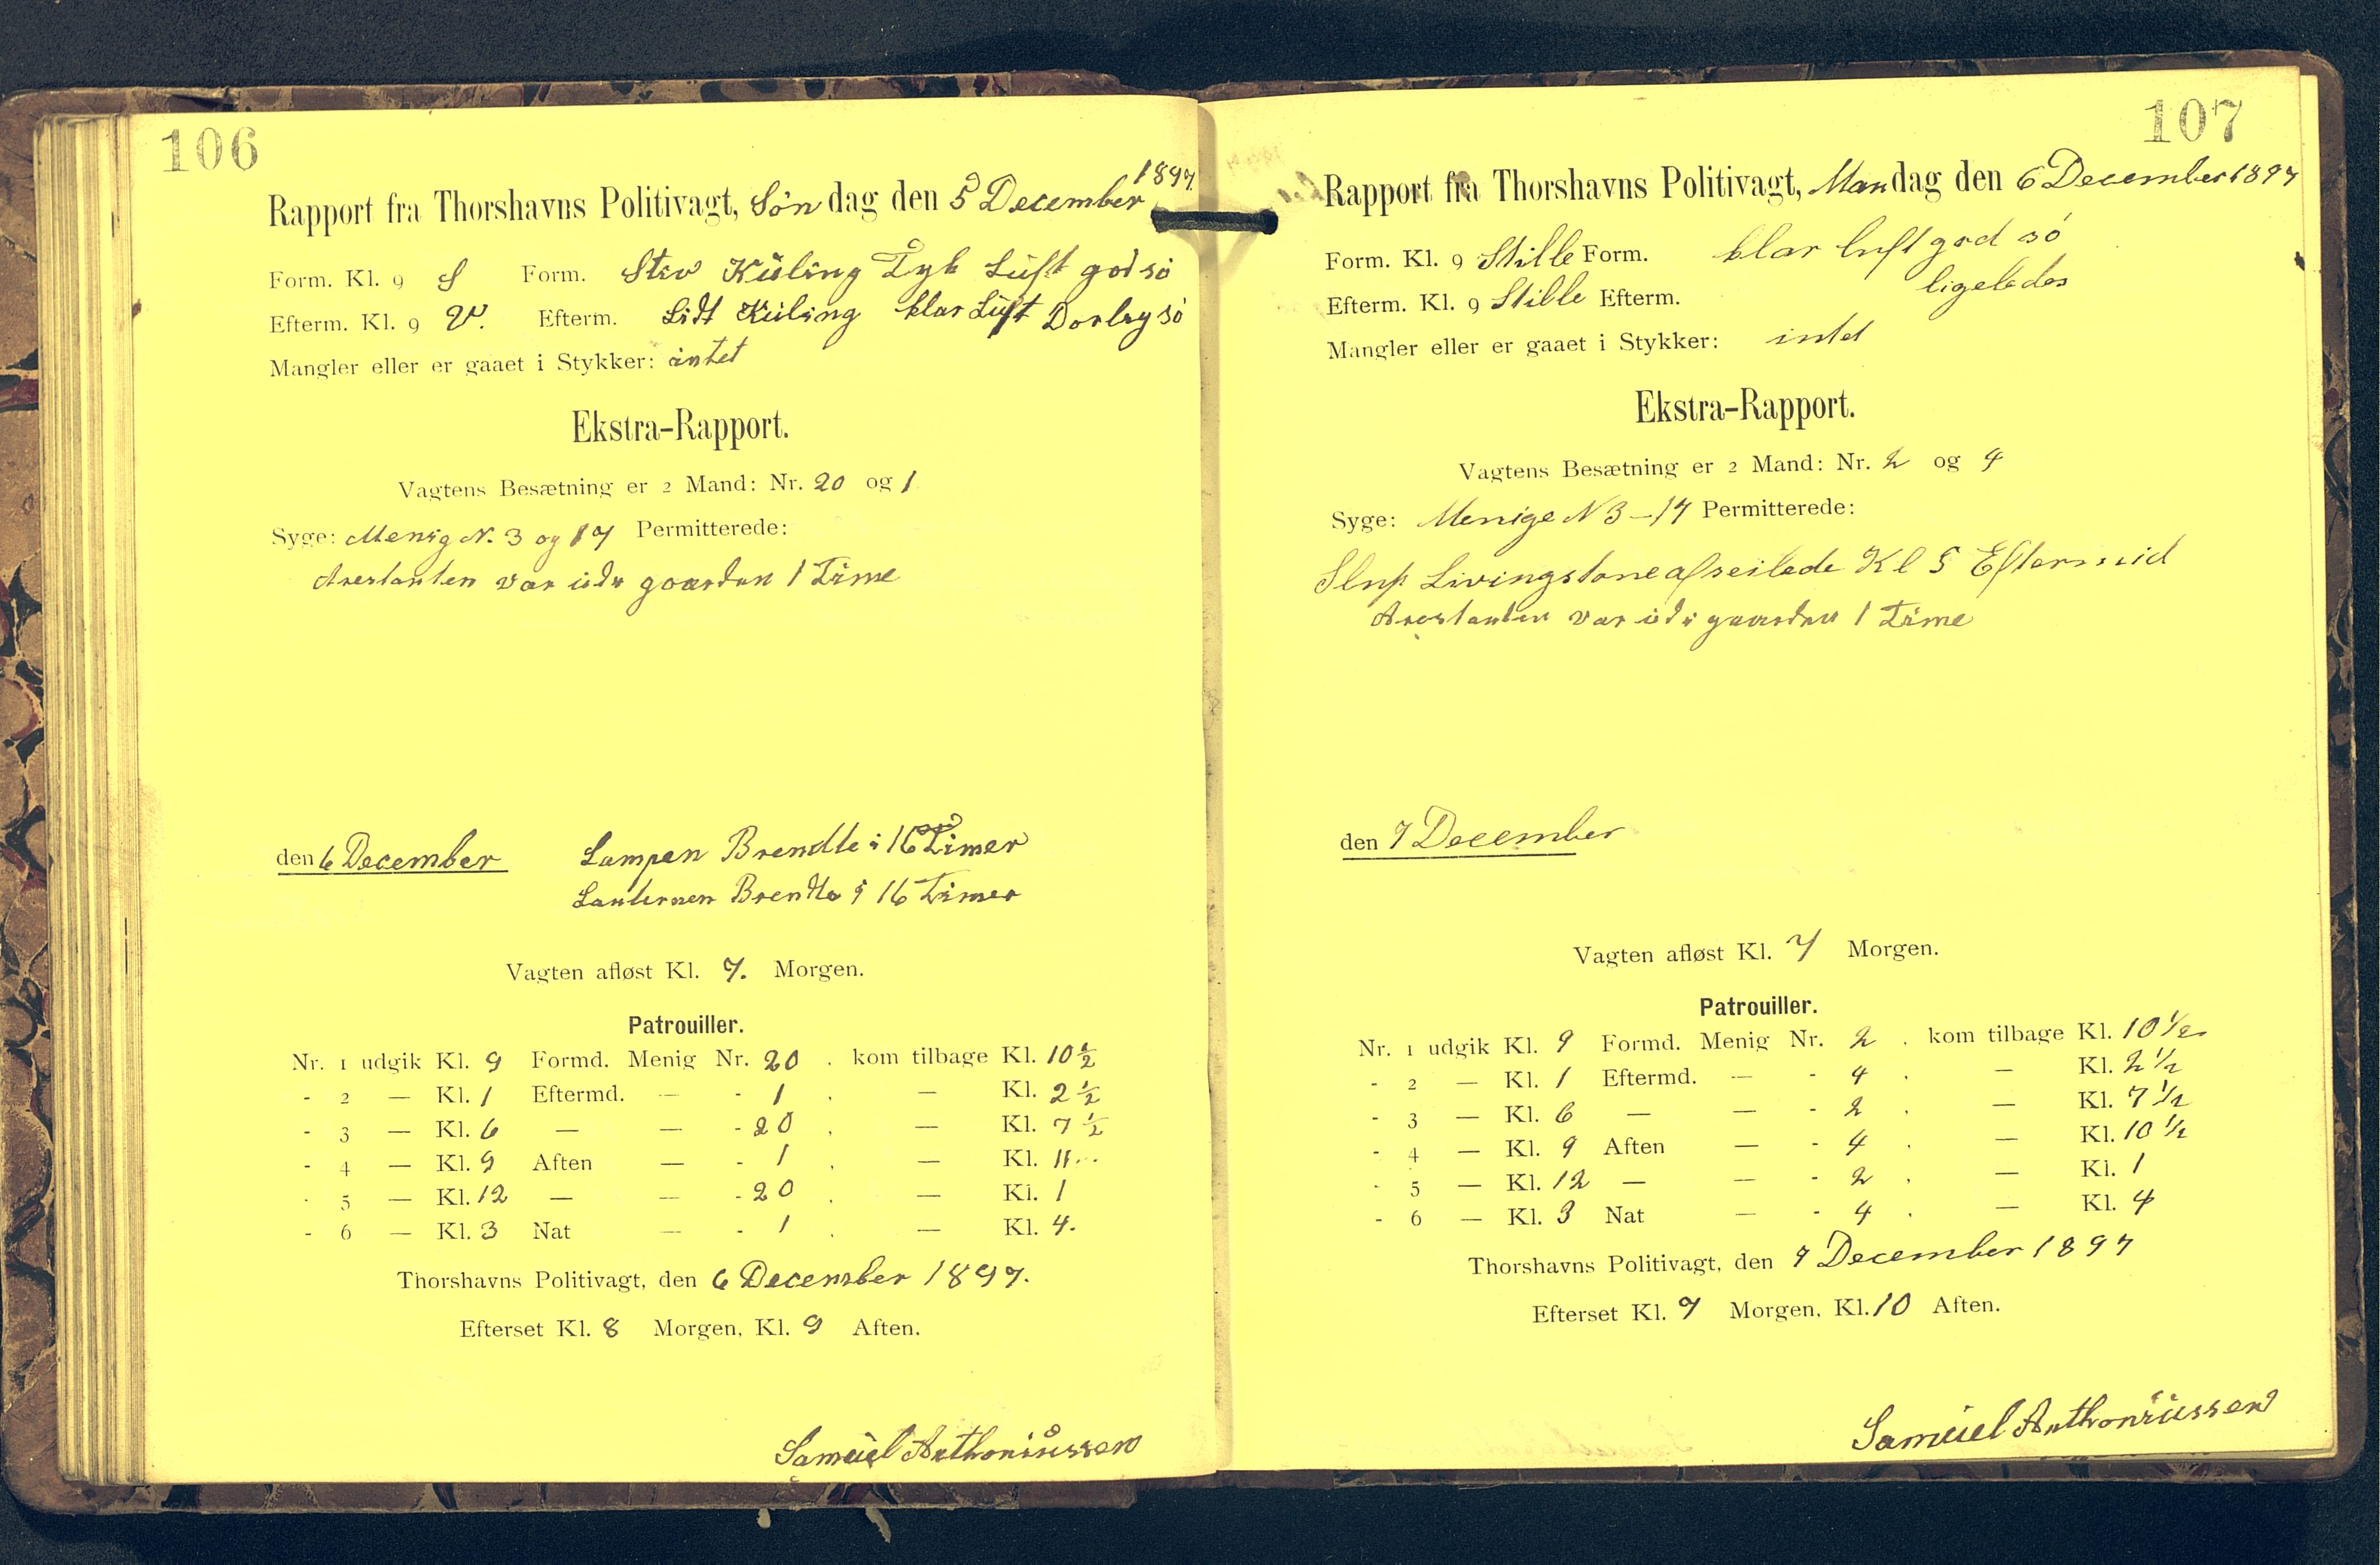 106
Rapport fra Thorshavns Politivagt, Søndag den 5 December 1897.
Form. Kl. 9 S Form. Stiv Küling Tyk Luft god sö
Efterm. Kl. 9 V. Efterm. Lidt Küling klar Luft Dorlig sö
Mangler eller er gaaet i Stykker: intet
Ekstra-Rapport.
Vagtens Besætning er 2 Mand: Nr. 20 og 1
Syge: Menig N. 3 og 17 Permitterede:
Arestanten var üd i gaarden 1 Time
den 6 December Lampen Brendte i 16 Timer
Lanternen Brendte i 16 Timer
Vagten afløst Kl. 7. Morgen.
Patrouiller.
Nr. 1 udgik Kl. 9 Formd. Menig Nr. 20 . kom tilbage Kl. 10 ½
- 2 — Kl. 1 Eftermd. — - 1 . — Kl. 2 ½
- 3 — Kl. 6 — — - 20 . — Kl. 7 ½
- 4 — Kl. 9 Aften — - 1 . — Kl. 11
- 5 — Kl. 12 — — - 20 . — Kl. 1
- 6 — Kl. 3 Nat — - 1 . — Kl. 4.
Thorshavns Politivagt, den 6 December 1897.
Efterset Kl. 8 Morgen, Kl. 9 Aften.
Samüel Anthoniüssen
107
Rapport fra Thorshavns Politivagt, Mandag den 6 December 1897
Form. Kl. 9 Stille Form. klar luft god sö
Efterm. Kl. 9 Stille Efterm. ligeledes
Mangler eller er gaaet i Stykker: intet
Ekstra-Rapport.
Vagtens Besætning er 2 Mand: Nr. 2 og 4
Syge: Menige N 3 – 17 Permitterede:
Slup Livingstone afseilede Kl 5 Eftermid
Arestanten var üd i gaarden 1 Time
den 7 December
Vagten afløst Kl. 7 Morgen.
Patrouiller.
Nr. 1 udgik Kl. 9 Formd. Menig Nr. 2 . kom tilbage Kl. 10 ½
- 2 — Kl. 1 Eftermd. — - 4 . — Kl. 2 ½
- 3 — Kl. 6 — — - 2 . — Kl. 7 ½
- 4 — Kl. 9 Aften — - 4 . — Kl. 10 ½
- 5 — Kl. 12 — — - 2 . — Kl. 1
- 6 — Kl. 3 Nat — - 4 . — Kl. 4
Thorshavns Politivagt, den 7 December 1897
Efterset Kl. 7 Morgen, Kl. 10 Aften.
Samüel Anthoniüssen